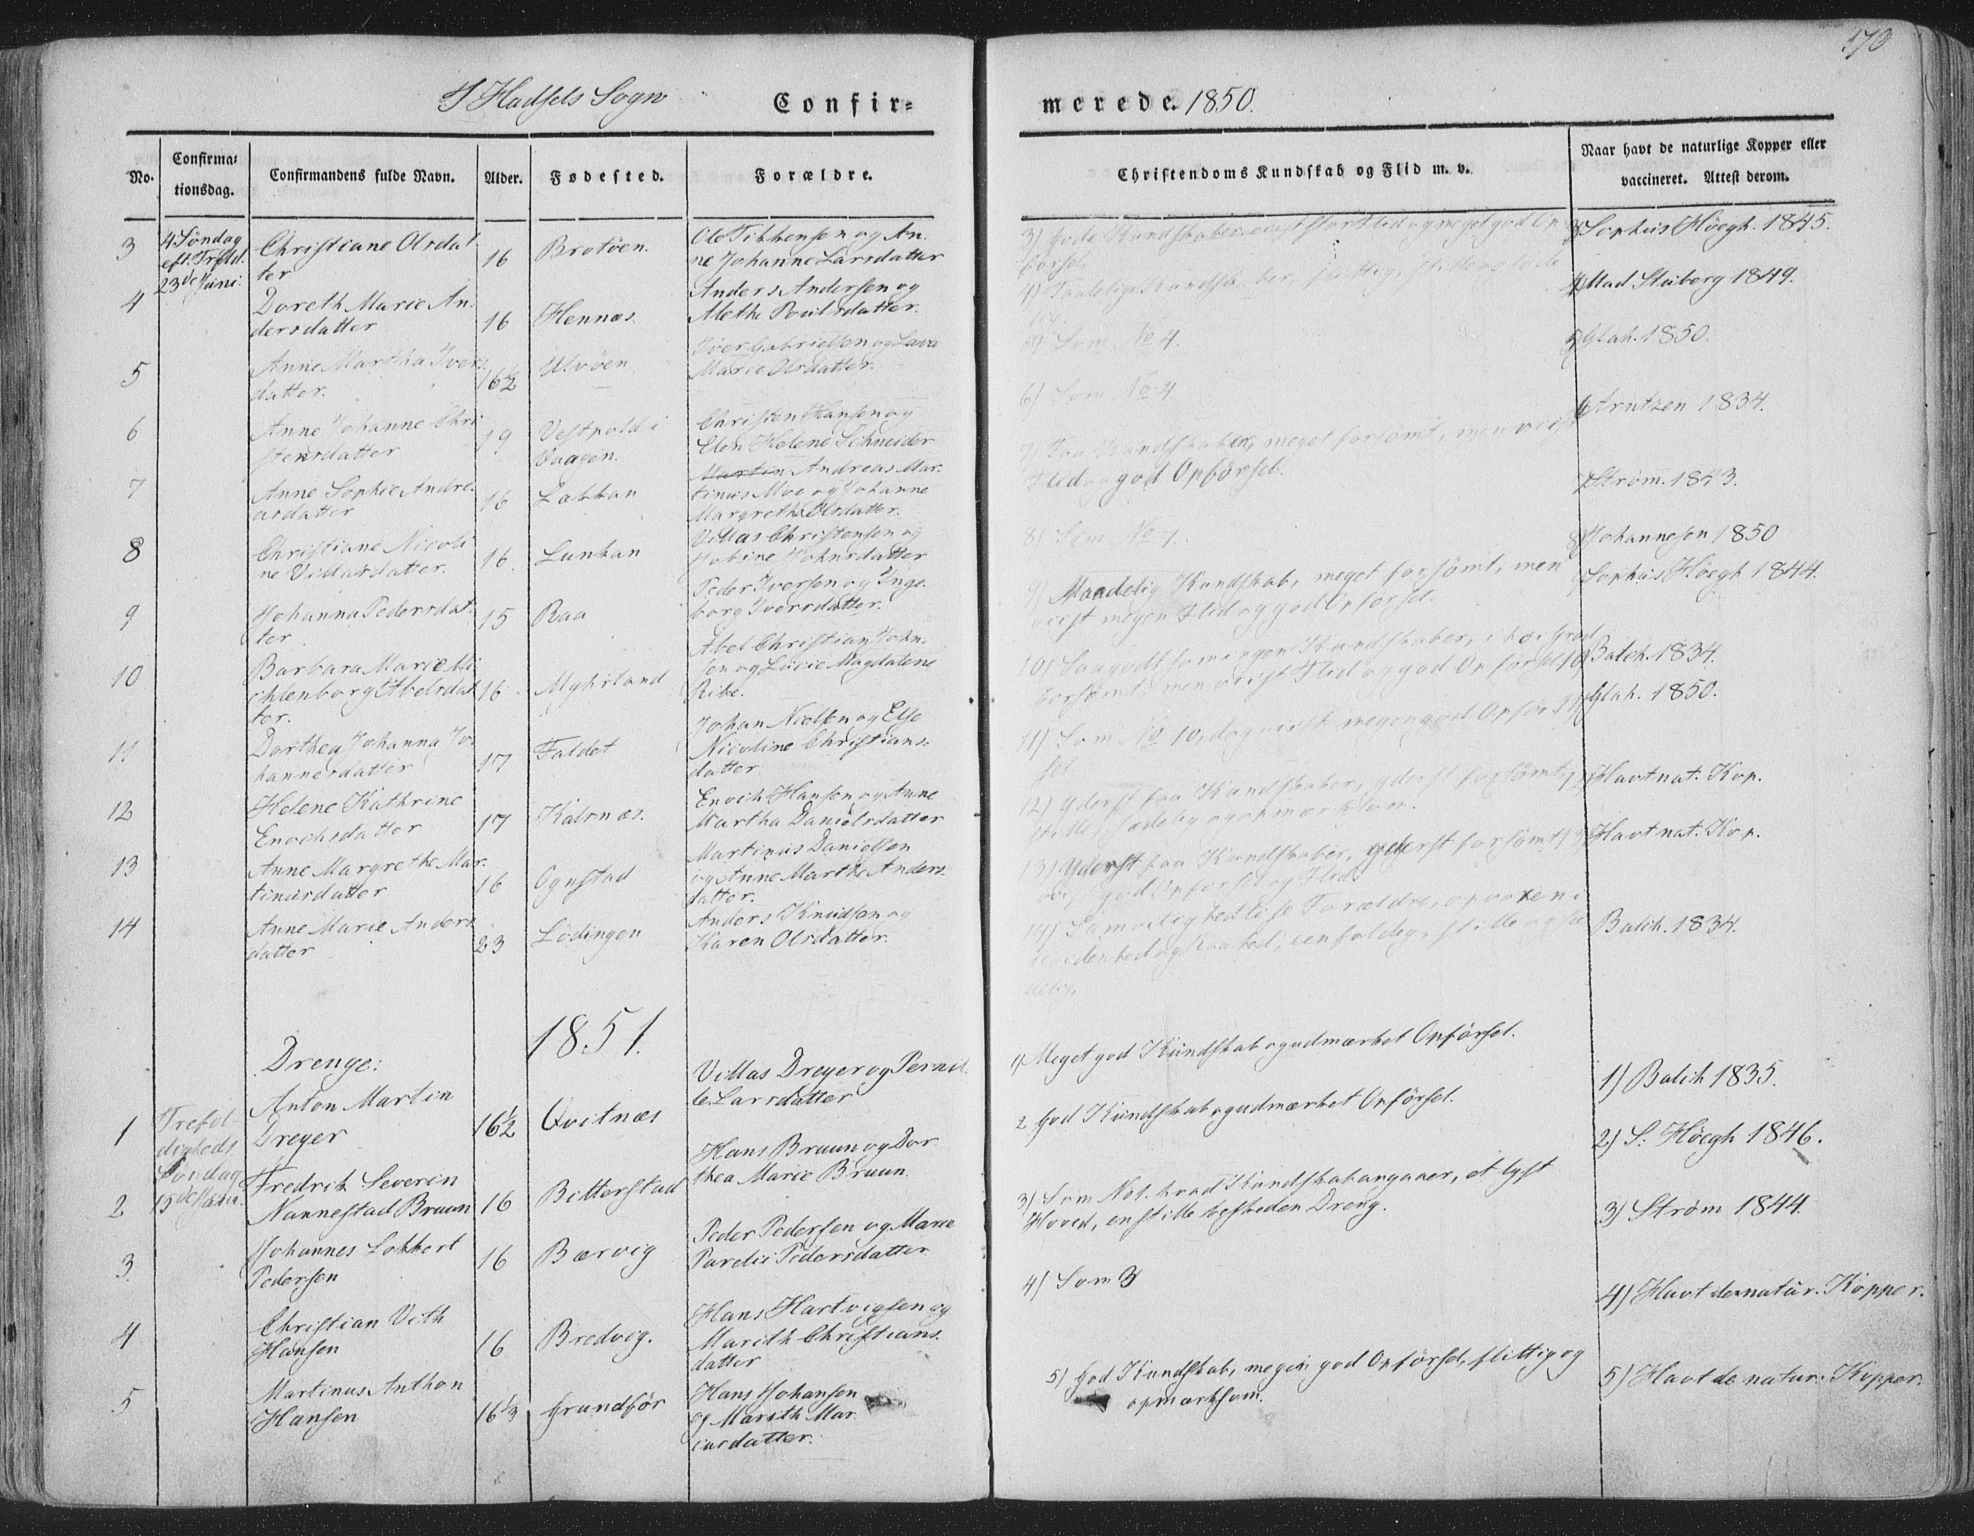 170
I Hadsels Sogn Confir=
merede. 1850.
No.
Confirma=
tionsdag.
Confirmandens fulde Navn.
Alder.
Fødested.
Forældre.
Christendoms Kundskab og Flid m. v.
Naar havt de naturlige Kopper eller
vaccineret. Attest derom.
3
4 Søndag
eft. Trefol.
23de Juni.
Christiane Olsdat
ter
16
Brotöen
Ole og An.
ne Johanne Larsdatter
3) Gode Kundskaber Flid og meget god Op
førsel.
Sophus Höegh. 1845.
4
Doreth Marie An.
dersdatter
16
Hennæs.
Anders Andersen og
Methe Poulsdatter.
4) Taalelige Kundskaber, flittig, stille og
4) Mad Stuberg 1849.
5
Anne Martha Ivers
datter.
16½
Ulvöen
Iver Gabrielsen og
Marie Olsdatter.
5) Som No 4.
5) Glah. 1850.
6
Anne Johanne Chri
stensdatter
19
Vestpold i
Vaagen.
Christen Hansen og
Elen Helene Schneider
6) Som No 4
6 Arntzen 1834.
7
Anne Sophie Andre.
asdatter
16
Lækkan
Martin Andreas Mar.
tinus Moe og Johanne
Margrethe Olsdatter.
7) Faa Kundskaber, meget forsömt, men viist
Flid og god Opförsel.
7 Ström. 1843.
8
Christiane Nicoli
ne Villasdatter.
16.
Lunkan
Villas Christensen og
Jobine Johnsdatter
8) Som No 7.
8) Johannesen 1850
9
Johanna Pedersdat
ter
15
Raa
Peder Iversen og Inge.
borg Iversdatter.
9) Maadelig Kundskab, meget forsömt, men
viist megen Flid og god Opförsel.
Sophus Höegh 1844.
10
Barbara Marie Mi
chlenborg Abelsdat
ter.
16.
Myhrland
Abel Christian John.
sen og Lucie Magdalene
Ribe.
10) Saagodt som ingen Kundskaber, i höi Grad
forsömt, men viist Flid og god Opförsel
10) Balch. 1834.
11
Dorthea Johanna Jo.
hannesdatter
17
Faldet
Johan Nielsen og Else
Nicoline Christians.
datter
11) Som No 10, dog viist megen god Opför
sel
11) Glah. 1850.
12
Helene Kathrine
Enochsdatter
17
Kalsnæs.
Enoch Hansen og Anne
Martha Danielsdatter
12) Yderst faa Kundskaber, yderst forsömt,
stille, sædelig og opmærksom.
12) Havt nat. Kop.
13
Anne Margrethe Mar.
tinusdatter
16
Ognstad
Martinus Danielsen
og Anne Marthe Anders.
datter.
13) Yderst faa Kundskaber, yderst forsömt,
viist god Opförsel og Flid.
13) Havt nat. Kop.
14
Anne Marie Anders
datter
23
Lödingen
Anders Knudsen og
Karen Olsdatter.
14) Samvittighedlöse Forældre, opvoxen i
Uvidenhed og Raahed, eenfoldig, stille og sæ
delig.
Balch. 1834.
1851.
Drenge:
1
Trefol.
digheds
Søndag
15de Juni.
Anton Martin
Dreyer
16½
Qvitnæs
Villas Dreyer og Pernil.
le Larsdatter
1) Meget god Kundskab og udmærket Opförsel.
1) Balch 1835.
2
Fredrik Severin
Nannestad Bruun
16
Bitterstad
Hans Bruun og Dor
thea Marie Bruun.
2 God Kundskab og udmærket Opförsel.
2) S. Höegh 1846.
3.
Johannes Lokkert
Pedersen
16
Bærvig
Peder Pedersen og Marie
Pardie Pedersdatter.
3) Som No 1. hvad Kundskab angaaer, et lyst
Hoved, en stille beskeden Dreng.
3) Ström 1844.
4
Christian Vith
Hansen
16
Bredvig.
Hans Hartvigsen og
Mareth Christians.
datter
4) Som 3
4) Havt de natur. Kopper.
5
Martinus Anthon
Hansen
16⅓
Grundför
Hans Johansen
og Mareth Mar.
iusdatter.
5) God Kundskab, megen god Opförsel, flittig og
opmærksom.
5) Havt de natur. Kopper.